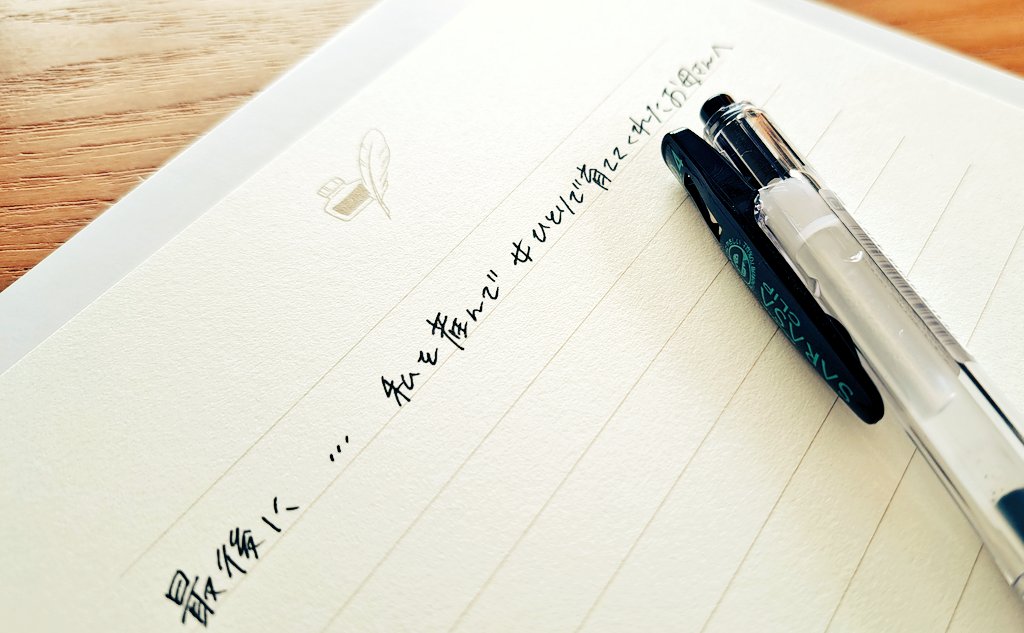 最後に … 私を産んで 女ひとりで育ててくれたお母さんへ
SARASA
CLIP